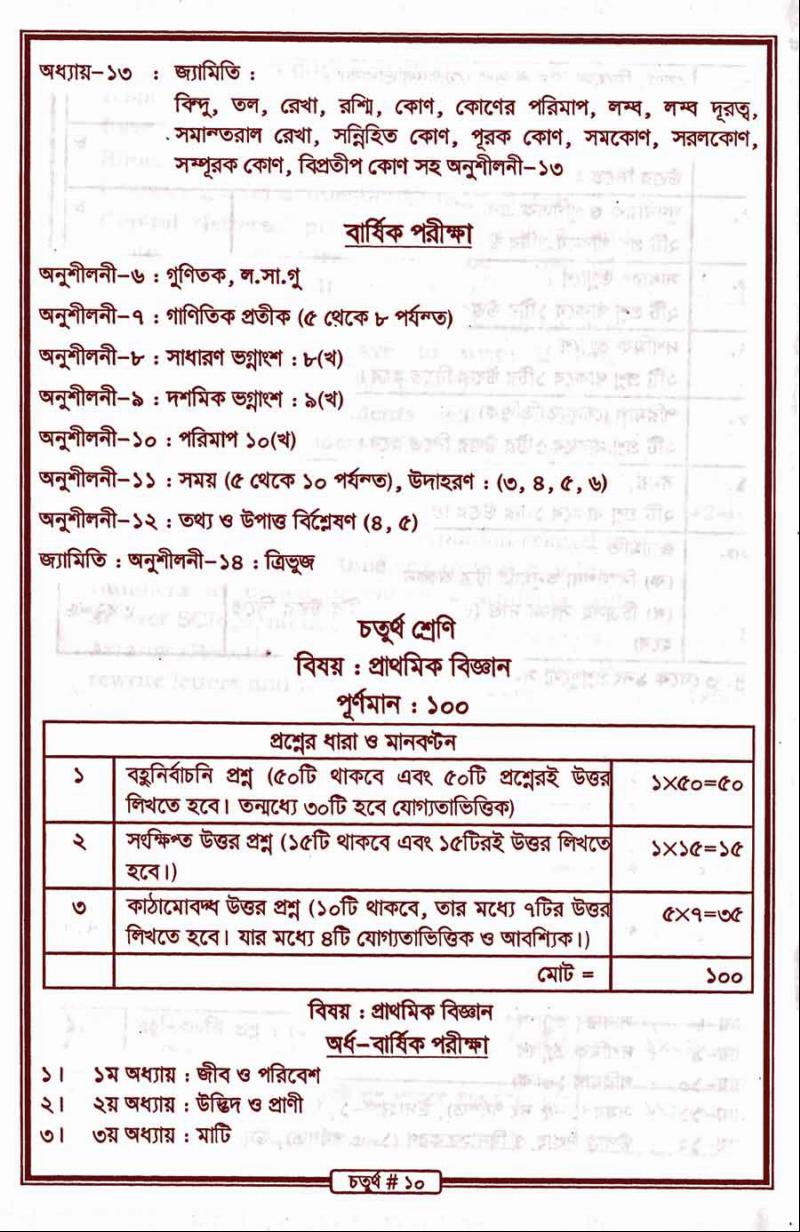 অধ্যায়-১৩ : জ্যামিতি :
বিন্দু, তল, রেখা, রশ্মি, কোণ, কোণের পরিমাপ, লম্ব, লম্ব দূরত্ব,
সমান্তরাল রেখা, সন্নিহিত কোণ, পূরক কোণ, সমকোণ, সরলকোণ,
সম্পূরক কোণ, বিপ্রতীপ কোণ সহ অনুশীলনী-১৩
বার্ষিক পরীক্ষা
অনুশীলনী-৬ : গুণিতক, ল.সা.গু
অনুশীলনী-৭ : গাণিতিক প্রতীক (৫ থেকে ৮ পর্যন্ত)
অনুশীলনী-৮ : সাধারণ ভগ্নাংশ : ৮(খ)
অনুশীলনী-৯ : দশমিক ভগ্নাংশ : ৯(খ)
অনুশীলনী-১০ : পরিমাপ ১০(খ)
অনুশীলনী-১১ : সময় (৫ থেকে ১০ পর্যন্ত), উদাহরণ : (৩, ৪, ৫, ৬)
অনুশীলনী-১২ : তথ্য ও উপাত্ত বির্শ্লেষণ (৪, ৫)
জ্যামিতি : অনুশীলনী-১৪ : ত্রিভূজ
চতুর্থ শ্রেণি
বিষয় : প্রাথমিক বিজ্ঞান
পূর্ণমান : ১০০
প্রশ্নের ধারা ও মানবণ্টন
১ বহুনির্বাচনি প্রশ্ন (৫০টি থাকবে এবং ৫০টি প্রশ্নেরই উত্তর ১×৫০=৫০
লিখতে হবে। তন্মধ্যে ৩০টি হবে যোগ্যতাভিত্তিক)
২ সংক্ষিপ্ত উত্তর প্রশ্ন (১৫টি থাকবে এবং ১৫টিরই উত্তর লিখতে ১×১৫=১৫
হবে।)
৩ কাঠামোবদ্ধ উত্তর প্রশ্ন (১০টি থাকবে, তার মধ্যে ৭টির উত্তর ৫×৭=৩৫
লিখতে হবে। যার মধ্যে ৪টি যোগ্যতাভিত্তিক ও আবশ্যিক।)
মোট = ১০০
বিষয় : প্রাথমিক বিজ্ঞান
অর্ধ-বার্ষিক পরীক্ষা
১। ১ম অধ্যায় : জীব ও পরিবেশ
২। ২য় অধ্যায় : উদ্ভিদ ও প্রাণী
৩। ৩য় অধ্যায় : মাটি
চতুর্থ # ১০